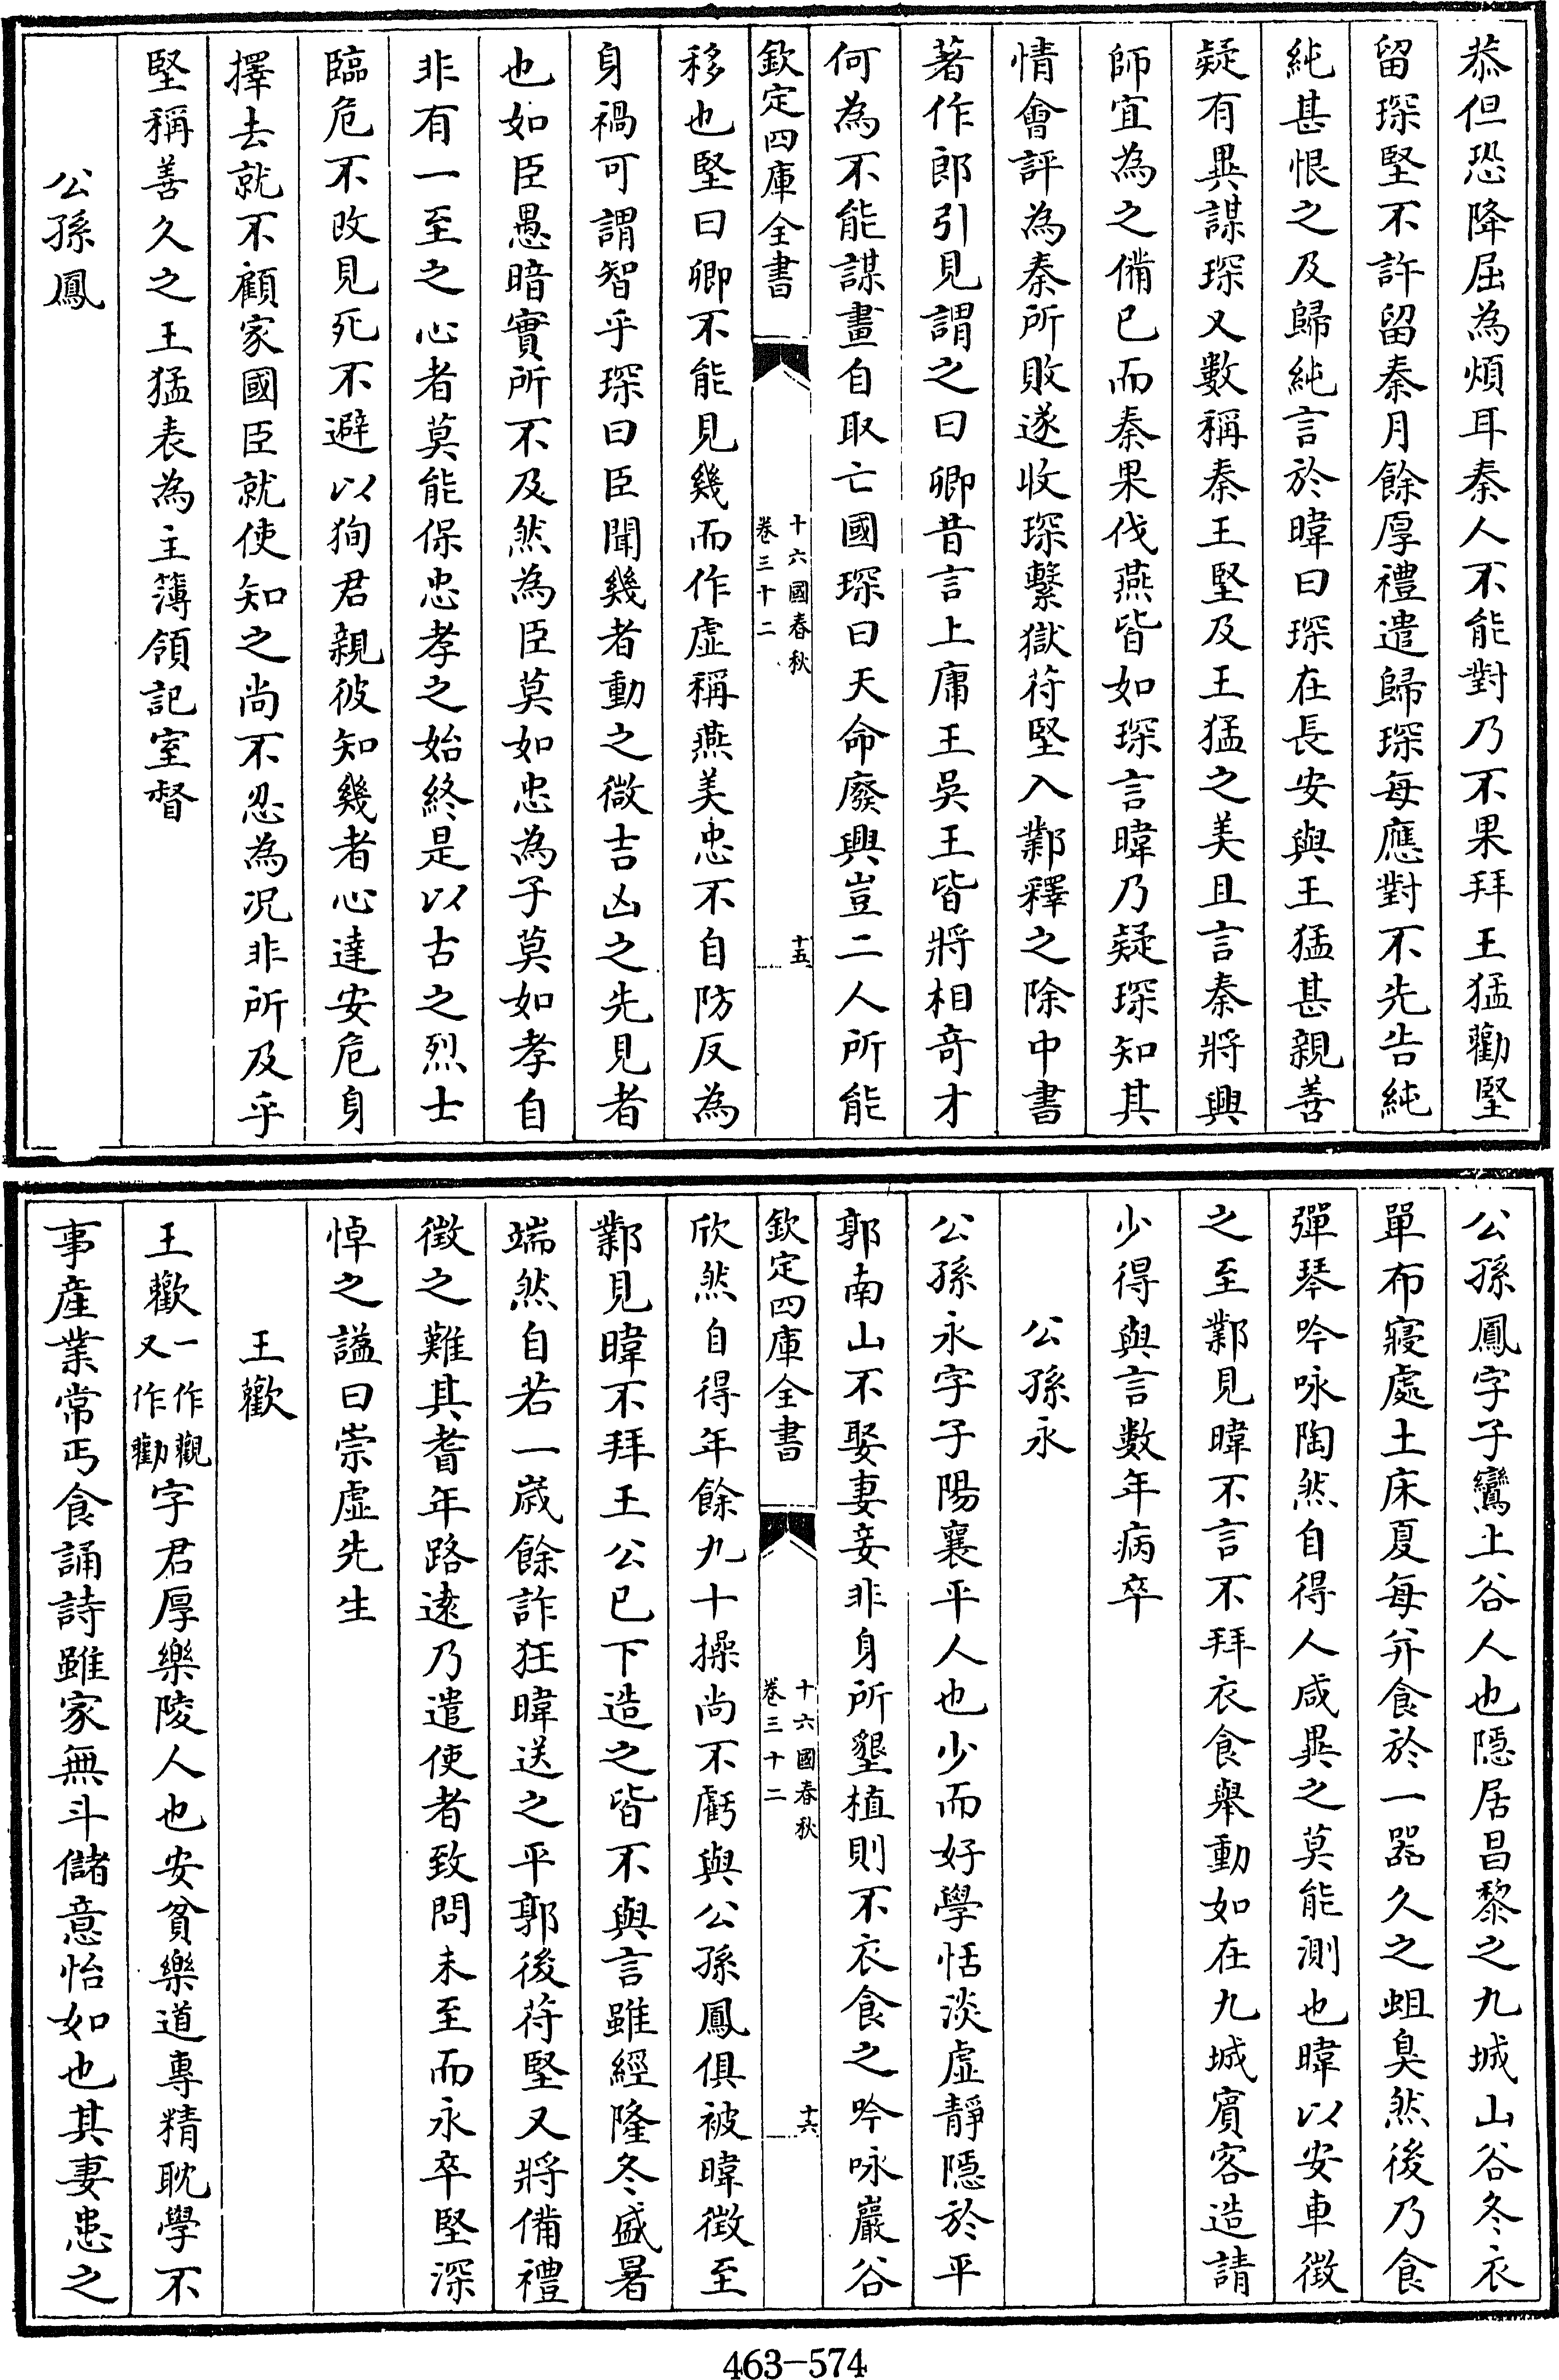 恭但恐降屈為煩耳秦人不能對乃不果拜王猛勸堅
留琛堅不許留秦月餘厚禮遣歸琛每應對不先告純
純甚恨之及歸純言於暐曰琛在長安與王猛甚親善
疑有異謀琛又數稱秦王堅及王猛之美且言秦將興
師宜為之備已而秦果伐燕皆如琛言暐乃疑琛知其
情會評為秦所敗遂收琛繫獄苻堅入鄴釋之除中書
著作郎引見謂之曰卿昔言上庸王吳王皆將相奇才
何為不能謀畫自取亡國琛曰天命廢興豈二人所能
欽定四庫全書
十六國春秋
卷三十二
十五
移也堅曰卿不能見幾而作虛稱燕美忠不自防反為
身禍可謂智乎琛曰臣聞幾者動之微吉凶之先見者
也如臣愚暗實所不及然為臣莫如忠為子莫如孝自
非有一至之心者莫能保忠孝之始終是以古之烈士
臨危不改見死不避以狥君親彼知幾者心達安危身
擇去就不顧家國臣就使知之尚不忍為況非所及乎
堅稱善久之王猛表為主簿領記室督
公孫鳳
公孫鳳字子鸞上谷人也隱居昌黎之九城山谷冬衣
單布寢處土床夏每并食於一器久之蛆臭然後乃食
彈琴吟咏陶然自得人咸異之莫能測也暐以安車徵
之至鄴見暐不言不拜衣食舉動如在九城賓客造請
少得與言數年病卒
公孫永
公孫永字子陽襄平人也少而好學恬淡虛靜隱於平
郭南山不娶妻妾非身所墾植則不衣食之吟咏巖谷
欽定四庫全書
十六國春秋
卷三十二
十六
欣然自得年餘九十操尚不虧與公孫鳳俱被暐徵至
鄴見暐不拜王公已下造之皆不與言雖經隆冬盛暑
端然自若一歲餘詐狂暐送之平郭後苻堅又將備禮
徵之難其耆年路逺乃遣使者致問未至而永卒堅深
悼之謚曰崇虛先生
王歡
王歡一作觀又作勸字君厚樂陵人也安貧樂道專精耽學不
事產業常丐食誦詩雖家無斗儲意怡如也其妻患之
463-574